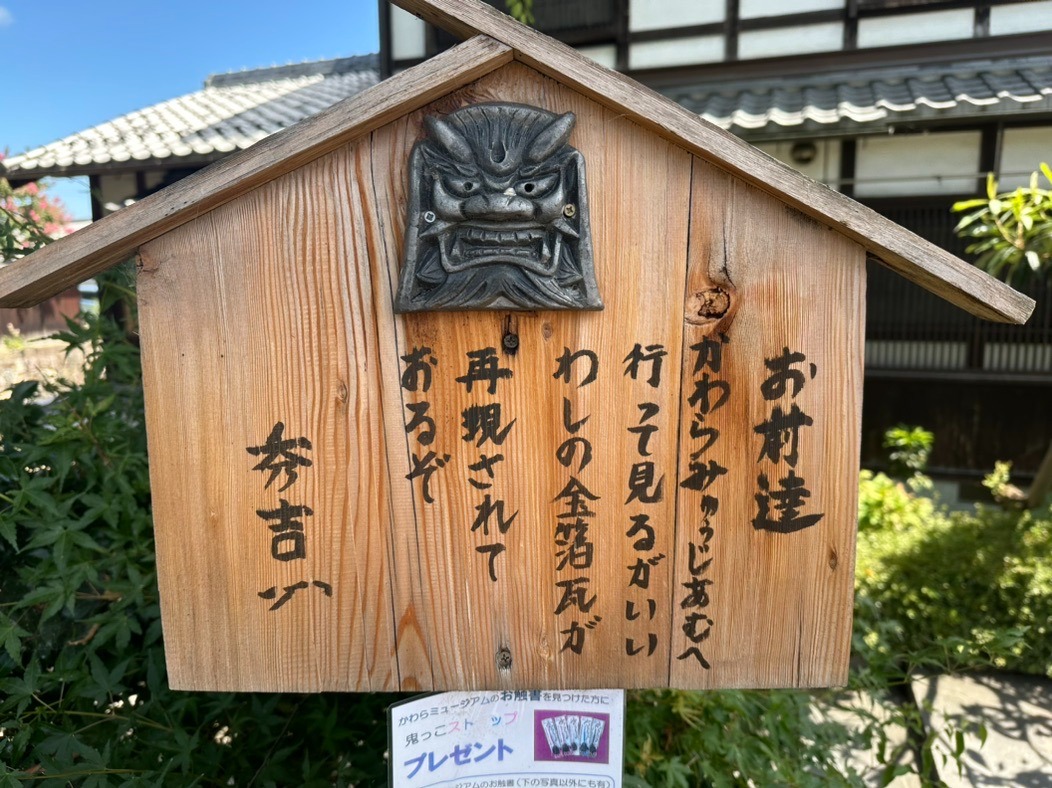 お前達
かわらみゅうじあむへ
行って見るがいい
わしの金箔瓦が
再現されて
おるぞ
秀吉
かわらミュージアムのお触書を見つけた方に
鬼っこストップ
プレゼント
ージアムのお触書(下の写真以外にも有)